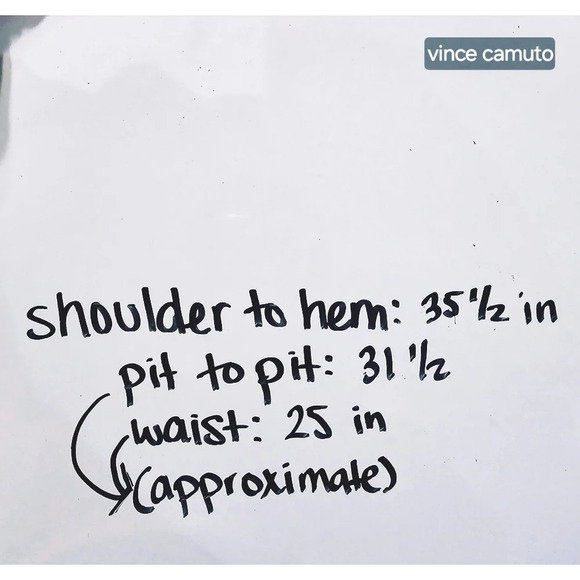 vince camuto
shoulder to hem: 35 1/2 in
pit to pit: 31 1/2
waist: 25 in
(approximate)